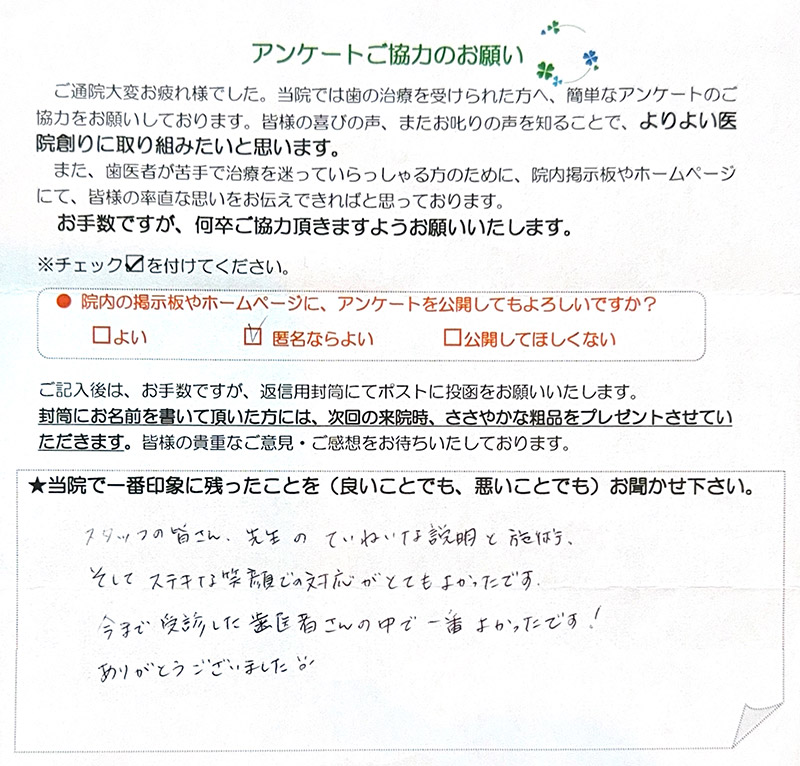 アンケートご協力のお願い
ご通院大変お疲れ様でした。当院では歯の治療を受けられた方へ、簡単なアンケートのご
協力をお願いしております。皆様の喜びの声、またお叱りの声を知ることで、よりよい医
院創りに取り組みたいと思います。
また、歯医者が苦手で治療を迷っていらっしゃる方のために、院内掲示板やホームページ
にて、皆様の率直な思いをお伝えできればと思っております。
お手数ですが、何卒ご協力頂きますようお願いいたします。
※チェック☑を付けてください。
● 院内の掲示板やホームページに、アンケートを公開してもよろしいですか？
□よい ☑匿名ならよい □公開してほしくない
ご記入後は、お手数ですが、返信用封筒にてポストに投函をお願いいたします。
封筒にお名前を書いて頂いた方には、次回の来院時、ささやかな粗品をプレゼントさせてい
ただきます。皆様の貴重なご意見・ご感想をお待ちいたしております。
★当院で一番印象に残ったことを（良いことでも、悪いことでも）お聞かせ下さい。
スタッフの皆さん、先生の ていねいな説明と施術、
そして ステキな笑顔での対応がとてもよかったです。
今まで 受診した歯医者さんの中で一番よかったです！
ありがとうございました